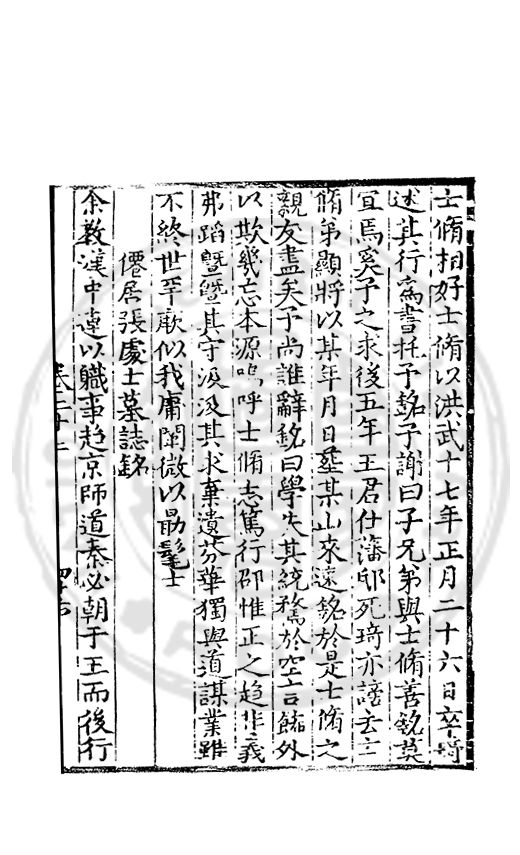 士脩相好士脩以洪武十七年正月二十六日卒
述其行為書托予銘予謝曰子兄弟與士脩善銘莫
宜焉奚予之求後五年王君仕藩邸死琦亦謫去士
脩弟顯將以某年月日葬某山來速銘於是士脩之
親友盡矣予尚誰辭銘曰學失其統騖於空言餙外
以欺幾忘本源嗚呼士脩志篤行卲惟正之趋非義
弗蹈曁曁其守汲汲其求棄遺芬華獨與道謀業雖
不終世罕歒似我庸闡微以勗髦士
僊居張處士墓誌銘
余教漢中連以職事趋京師道秦必朝于王而後行
卷二十二